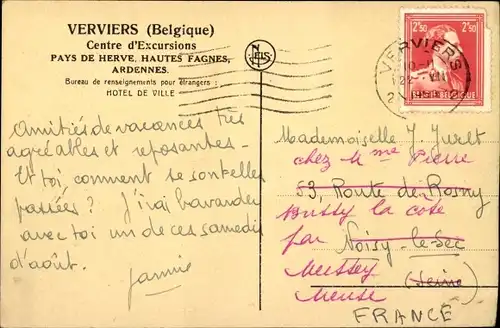 VERVIERS (Belgique)
Centre d'Excursions
PAYS DE HERVE, HAUTES FAGNES,
ARDENNES.
Bureau de renseignements pour étrangers :
HOTEL DE VILLE
NELS
2F50 2F50
BELGIQUE
VERVIERS
2 2
Amitiés de vacances très
agréables et reposantes -
Et toi comment se sont elles
passées ? J'irai bavarder
avec toi un de ces samedis
d'août.
Jannie
Mademoiselle J. Juret
chez Mme Pierre
53, Route de Rosny
Bussy la côte
par Noisy-le-Sec
Mussey (Seine)
Meuse
FRANCE